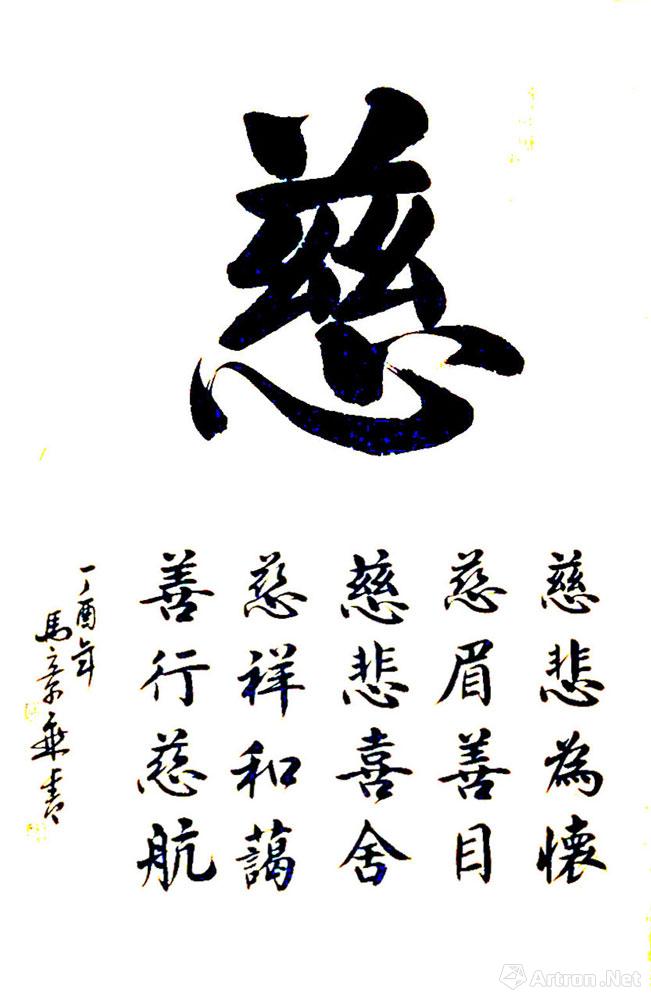 慈
慈悲為懷
慈眉善目
慈悲喜舍
慈祥和藹
善行慈航
丁酉年
馬景乘書
Artron.Net